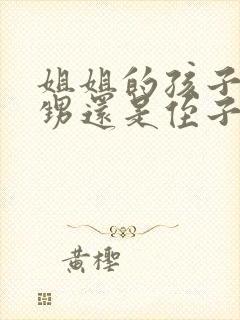 姐姐的孩子
甥還是侄子
黃櫻